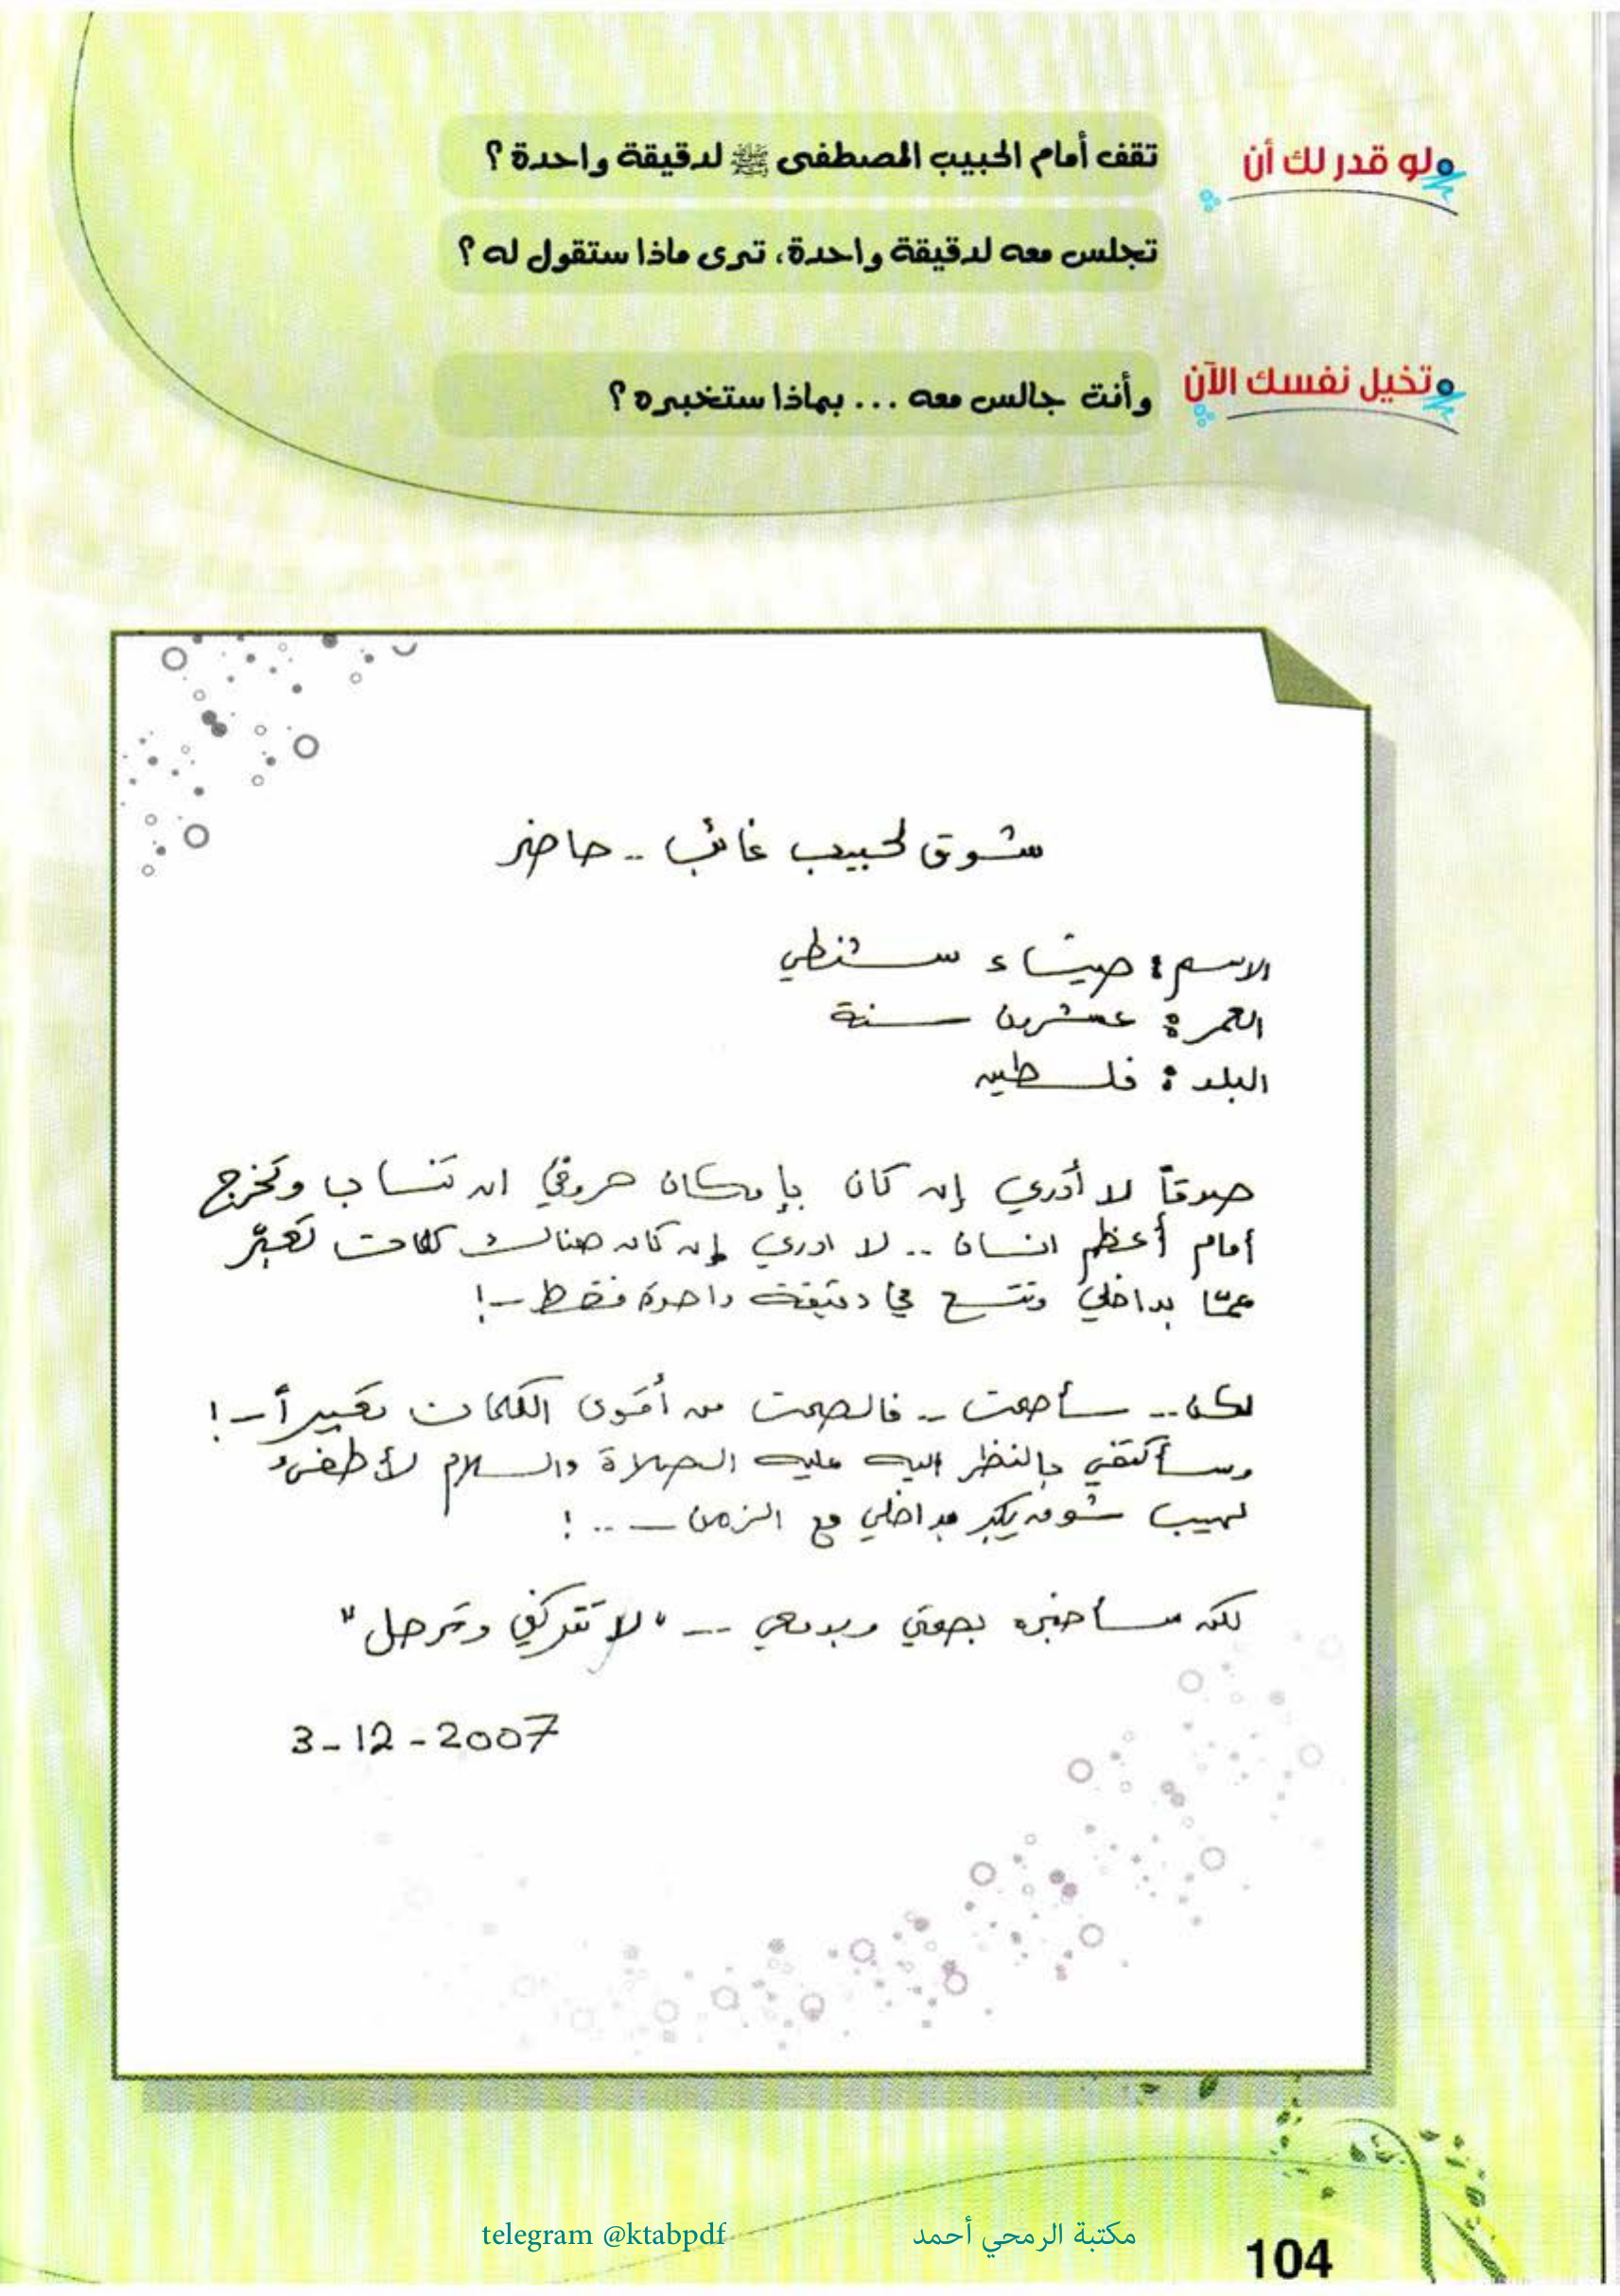 لو قدر لك أن
تقف أمام الحبيب المصطفى ﷺ لدقيقة واحدة ؟
تجلس معه لدقيقة واحدة، ترى ماذا ستقول له ؟
تخيل نفسك الآن
وأنت جالس معه ... بماذا ستخبره ؟
شوق لحبيب غائب .. حاضر
الاسم : ميساء
العمر : عشرين سنة
البلد : فلسطين
صدقاً لا أدري إن كان بإمكان حروفي ان تنساب وتخرج
أمام أعظم انسان .. لا ادري إن كان هنالك كلمات تعبّر
عمّا بداخلي وتتسع في دقيقة واحدة فقط ..!
لكن .. سأصمت .. فالصمت من أقوى الكلمات تعبيراً ..!
وسأكتفي بالنظر اليه عليه الصلاة والسلام لأطفىء
لهيب شوق يكبر بداخلي مع الزمن .... !
لكن سأخبره بصمتي وبدمعي ... "لا تتركني وترحل"
3-12-2007
telegram @ktabpdf
مكتبة الرمحي أحمد
104